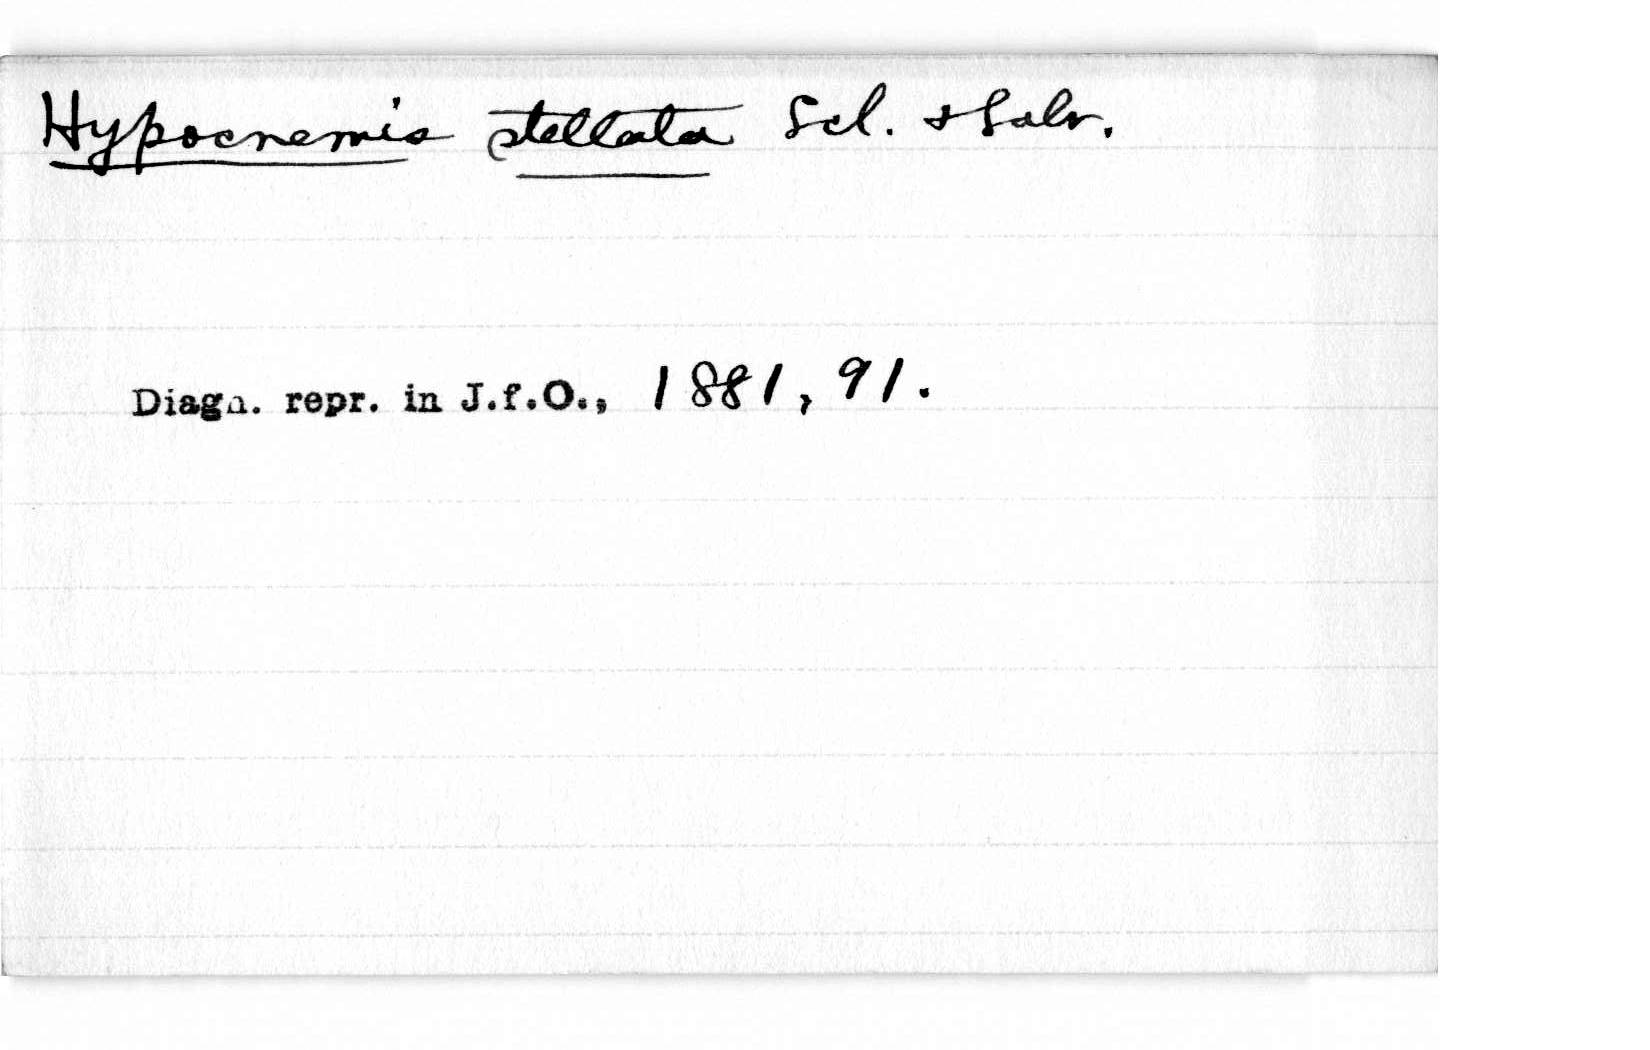 Hypocnemis stellata Scl. & Salv.
Diagn. repr. in J.f.O., 1881, 91.